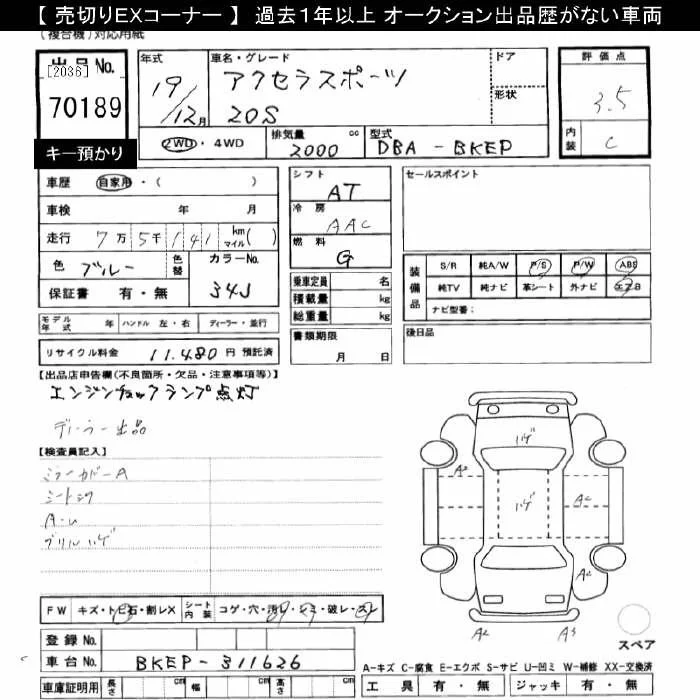 【 売切りEXコーナー 】 過去１年以上 オークション出品歴がない車両
(複合機)対応用紙
出品No.
[2036]
70189
キー預かり
年式
19/12月
車名・グレード
アクセラスポーツ
20S
ドア
形状
2WD・4WD
排気量 cc
2000
型式
DBA-BKEP
評価点
3.5
内装
C
車歴 自家用・( )
車検 年 月
走行 7万5千141 km マイル( )
色 ブルー
色替
カラーNo.
34J
保証書 有・無
シフト
AT
冷房
AAC
燃料
G
乗車定員 名
積載量 kg
総重量 kg
書類期限
月 日
セールスポイント
装備品
S/R 純A/W P/S P/W ABS
純TV 純ナビ 革シート 外ナビ エアB
ナビ型番：
後日品
モデル年式 年 ハンドル 左・右 ディーラー・並行
リサイクル料金 11,480 円 預託済
【出品店申告欄(不良箇所・欠品・注意事項等)】
エンジンチェックランプ点灯
ディーラー出品
【検査員記入】
ミラーカバーA
シート
A-U
グリルハゲ
ハゲ
ハゲ
A2
A2
A2
A2
A3
スペア
FW キズ・トビ石・割レX シート内装 コゲ・穴・汚レ・シミ・破レ・スレ
登録No.
車台No. BKEP-311626
車庫証明用 長さ cm 幅 cm 高さ cm
A-キズ C-腐食 E-エクボ S-サビ U-凹ミ W-補修 XX-交換済
工具 有・無 ジャッキ 有・無